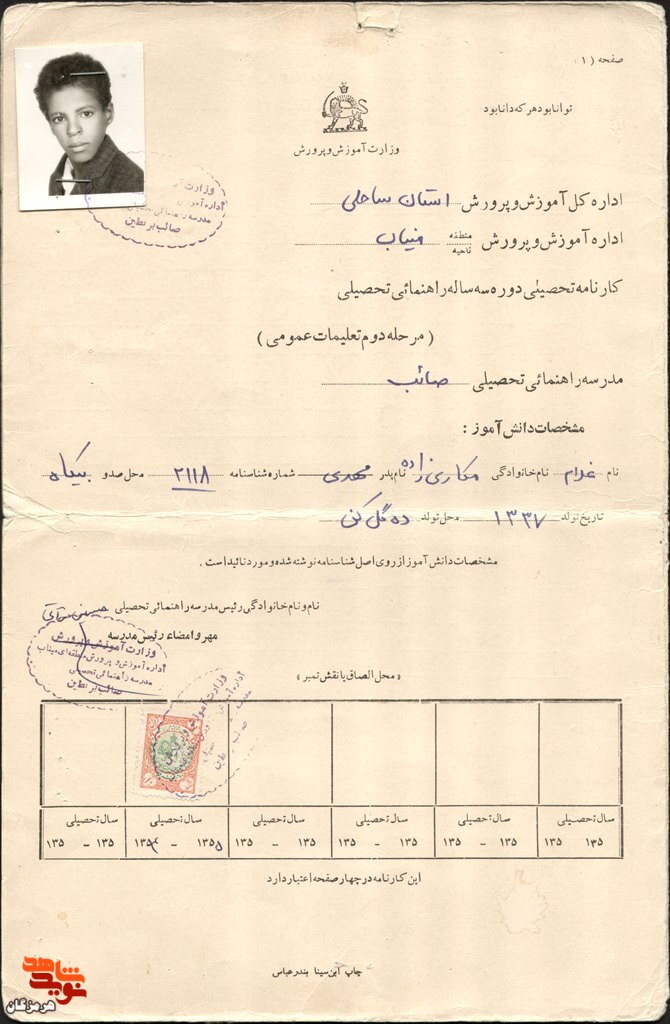 صفحه (۱)
توانا بود هر که دانا بود
وزارت آموزش و پرورش
اداره کل آموزش و پرورش استان ساحلی
اداره آموزش و پرورش منطقه ناحیه میناب
کارنامه تحصیلی دوره سه ساله راهنمائی تحصیلی
(مرحله دوم تعلیمات عمومی)
مدرسه راهنمائی تحصیلی صائب
مشخصات دانش آموز:
نام غلام نام خانوادگی مکاری زاده نام پدر مهدی شماره شناسنامه ۲۱۱۸ محل صدو بیکاه
تاریخ تولد ۱۳۳۷ محل تولد ده گل کن
مشخصات دانش آموز از روی اصل شناسنامه نوشته شده و مورد تائید است.
نام و نام خانوادگی رئیس مدرسه راهنمائی تحصیلی حسین
مهر و امضاء رئیس مدرسه
وزارت آموزش و پرورش
اداره آموزش و پرورش منطقه ای میناب
مدرسه راهنمائی تحصیلی
صائب بر نطین
«محل الصاق یا نقش تمبر»
سال تحصیلی سال تحصیلی سال تحصیلی سال تحصیلی سال تحصیلی سال تحصیلی
۱۳۵ ۱۳۵ ۱۳۵ - ۱۳۵ ۱۳۵ - ۱۳۵ ۱۳۵ - ۱۳۵ ۱۳۵۵ - ۱۳۵۴ ۱۳۵ - ۱۳۵
این کارنامه در چهار صفحه اعتبار دارد
چاپ ابن سینا بندرعباس
وزارت آ
اداره آموزش
مدرسه راهنمائی
صائب بر نطین
نوید شاهد
هرمزگان